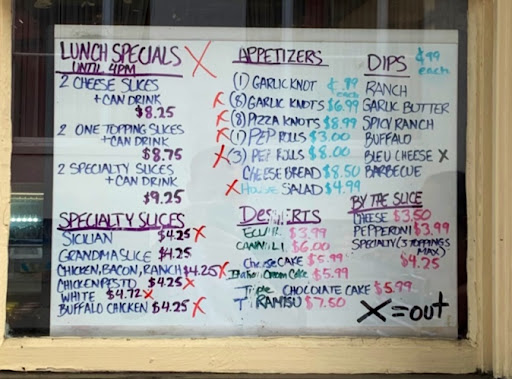 LUNCH SPECIALS X
UNTIL 4PM
2 CHEESE SLICES
+ CAN DRINK
$8.25
2 ONE TOPPING SLICES
+ CAN DRINK
$8.75
2 SPECIALTY SLICES
+ CAN DRINK
$9.25
SPECIALTY SLICES
SICILIAN $4.25 X
GRANDMA SLICE $4.25
CHICKEN, BACON, RANCH $4.25 X
CHICKEN PESTO $4.25 X
WHITE $4.72 X
BUFFALO CHICKEN $4.25 X
APPETIZERS
(1) GARLIC KNOT ¢.99 each
X (8) GARLIC KNOTS $6.99
X (8) PIZZA KNOTS $8.99
X (1) PEP ROLLS $3.00
X (3) PEP ROLLS $8.00
CHEESE BREAD $8.50
X HOUSE SALAD $4.99
DESSERTS
$3.99
CANNOLI $6.00
CheeseCAKE $5.99
Italian Cream Cake $5.99
Triple CHOCOLATE CAKE $5.99
TIRAMISU $7.50
DIPS ¢.99 each
RANCH
GARLIC BUTTER
SPICY RANCH
BUFFALO
BLEU CHEESE X
BARBECUE
BY THE SLICE
CHEESE $3.50
PEPPERONI $3.99
SPECIALTY (3 TOPPINGS
MAX)
$4.25
X = out